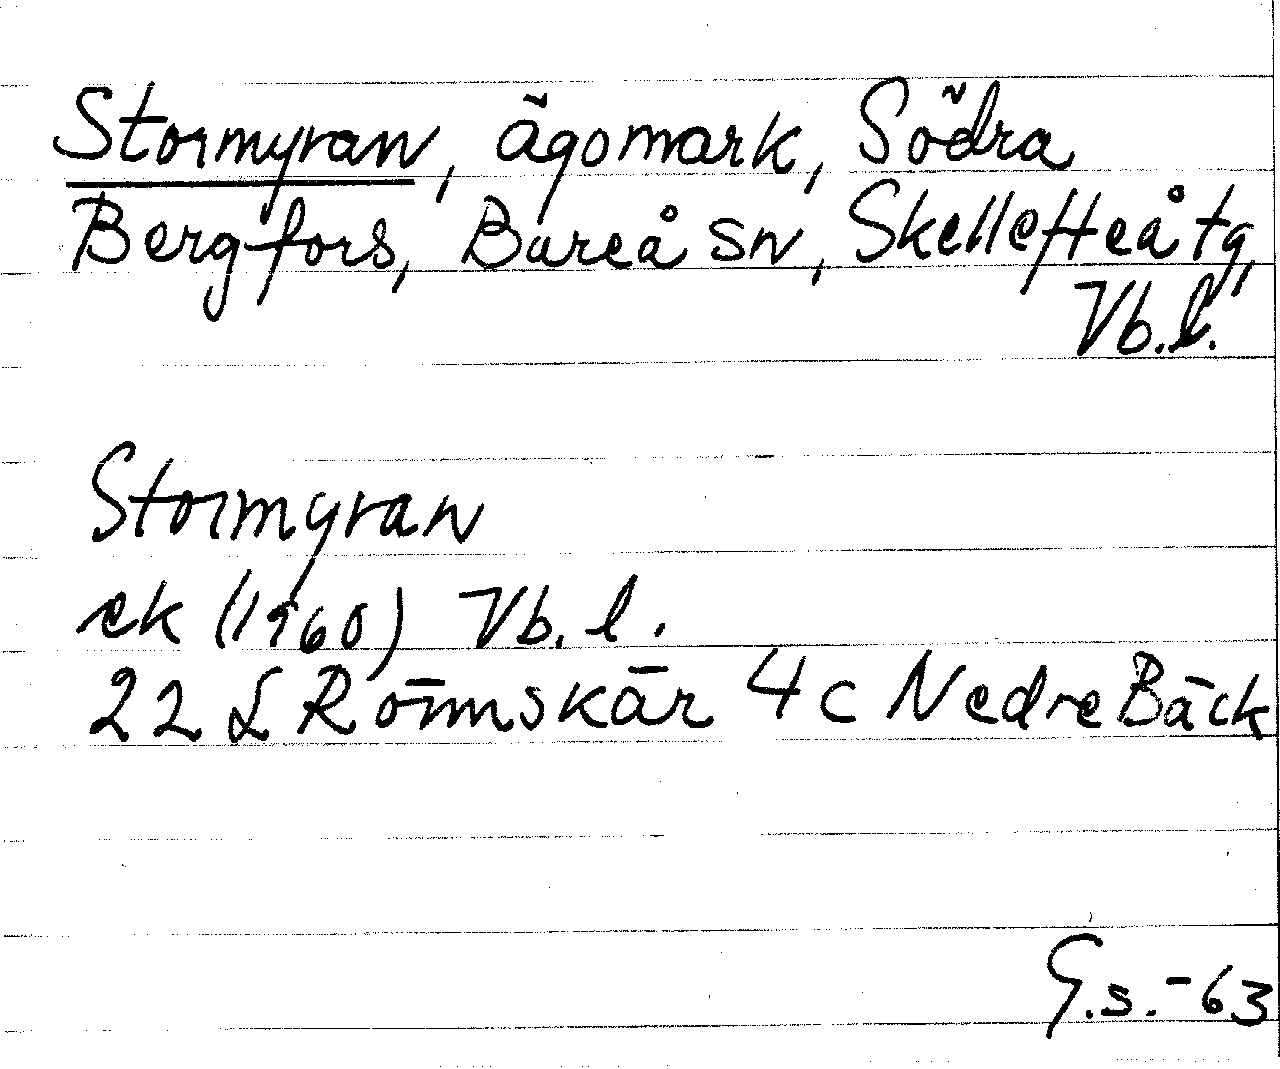 Stormyran, ägomark, Södra
Bergfors, Bureå sn, Skellefteå tg,
Vb.l.
Stormyran
ek (1960) Vb. l.
22 L Rönnskär 4c Nedre Bäck
G.s.-63